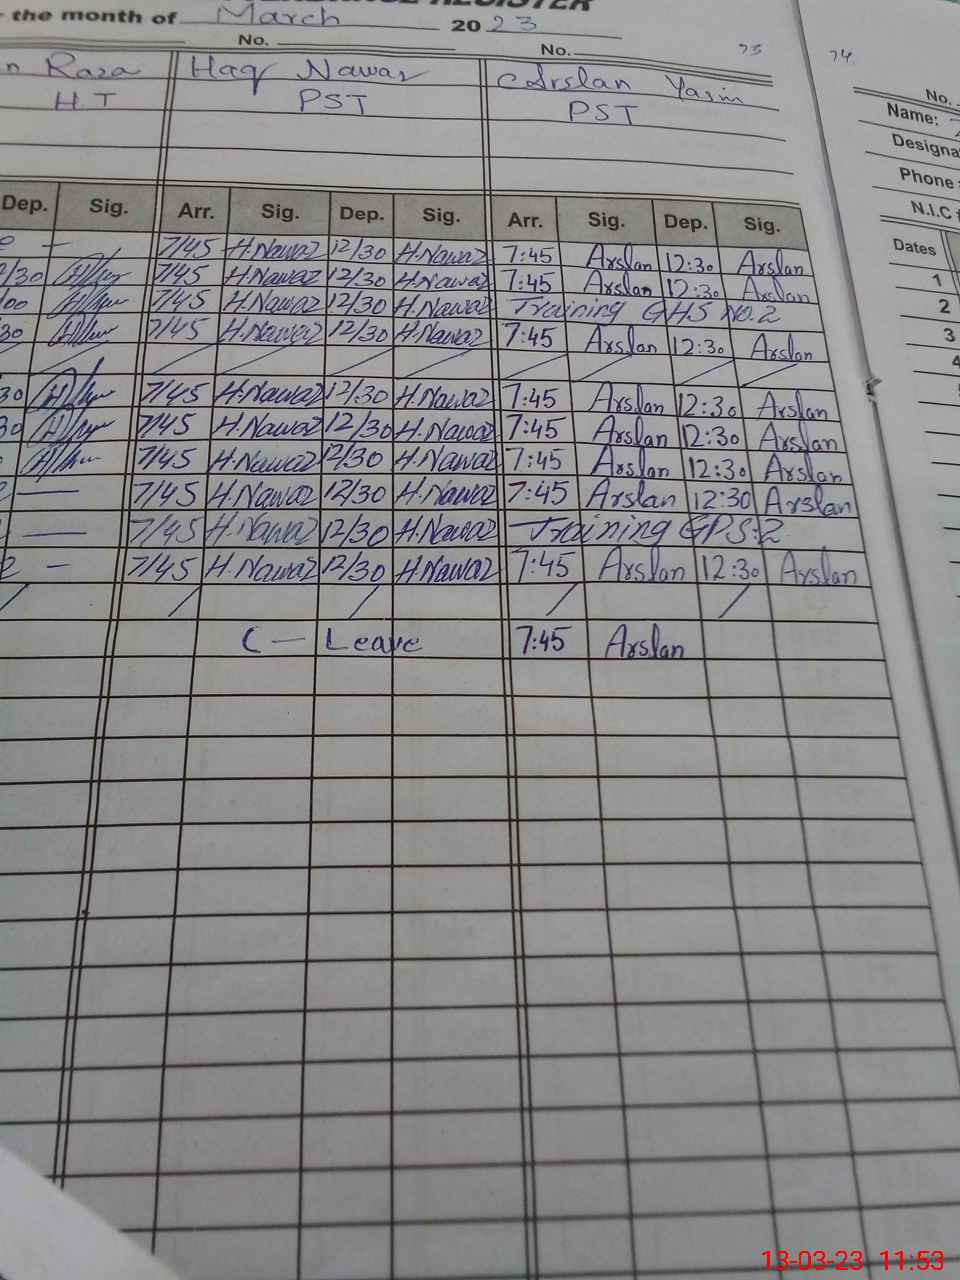 the month of March 2023
No. No. 73 74
Raza Haq Nawaz Arslan Yasin No.
H.T PST PST Name:
Designa
Phone
N.I.C
Dep. Sig. Arr. Sig. Dep. Sig. Arr. Sig. Dep. Sig. Dates
— 7/45 H.Nawaz 12/30 H.Nawaz 7:45 Arslan 12:30 Arslan 1
/30 7/45 H.Nawaz 12/30 H.Nawaz 7:45 Arslan 12:30 Arslan 2
00 7/45 H.Nawaz 12/30 H.Nawaz Training GHS No.2 3
30 7/45 H.Nawaz 12/30 H.Nawaz 7:45 Arslan 12:30 Arslan 4
30 7/45 H.Nawaz 12/30 H.Nawaz 7:45 Arslan 12:30 Arslan
30 7/45 H.Nawaz 12/30 H.Nawaz 7:45 Arslan 12:30 Arslan
7/45 H.Nawaz 12/30 H.Nawaz 7:45 Arslan 12:30 Arslan
— 7/45 H.Nawaz 12/30 H.Nawaz 7:45 Arslan 12:30 Arslan
— 7/45 H.Nawaz 12/30 H.Nawaz Training GPS:2
— 7/45 H.Nawaz 12/30 H.Nawaz 7:45 Arslan 12:30 Arslan
C — Leave 7:45 Arslan
13-03-23 11:53